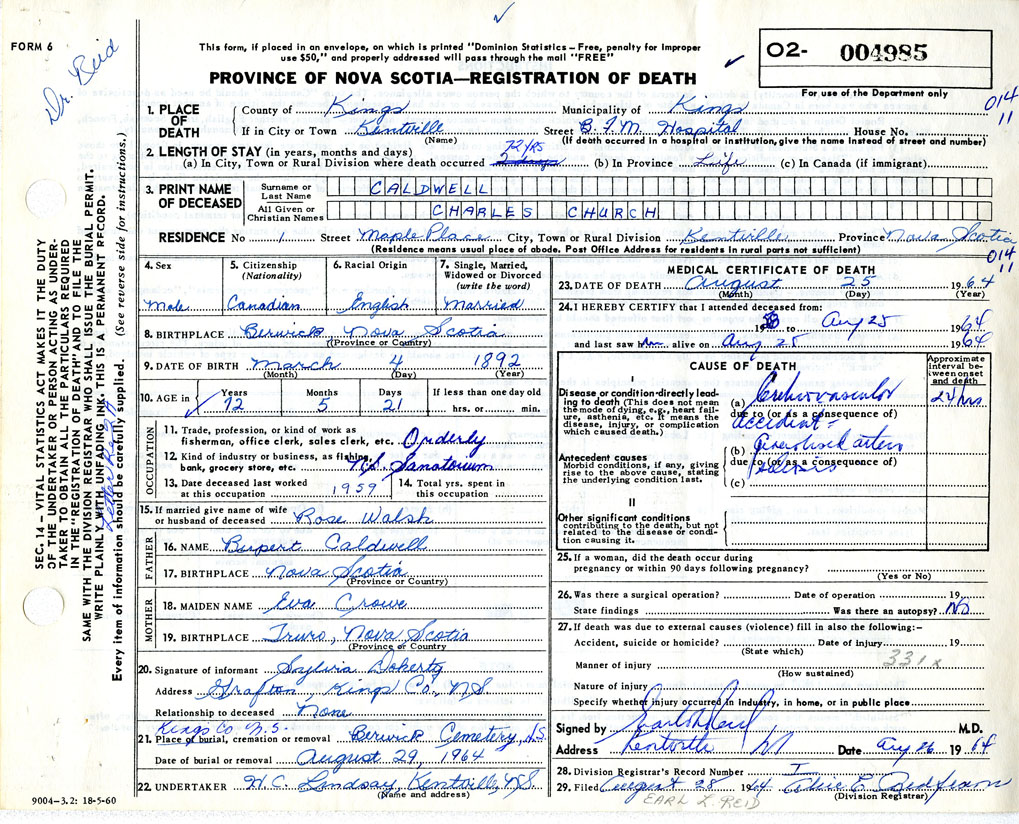 FORM 6
Dr. Reid
This form, if placed in an envelope, on which is printed "Dominion Statistics – Free, penalty for improper
use $50," and properly addressed will pass through the mail "FREE"
PROVINCE OF NOVA SCOTIA—REGISTRATION OF DEATH
O2- 004985
For use of the Department only
014
11
1. PLACE OF DEATH
County of Kings Municipality of Kings
If in City or Town Kentville Street B.F.M. Hospital House No.
(Name) (If death occurred in a hospital or institution, give the name instead of street and number)
72 yrs
2. LENGTH OF STAY (in years, months and days)
(a) In City, Town or Rural Division where death occurred (b) In Province Life (c) In Canada (if immigrant)
3. PRINT NAME OF DECEASED
Surname or Last Name CALDWELL
All Given or Christian Names CHARLES CHURCH
RESIDENCE No 1 Street Maple Place City, Town or Rural Division Kentville Province Nova Scotia
(Residence means usual place of abode. Post Office Address for residents in rural parts not sufficient)
014
11
4. Sex Male
5. Citizenship (Nationality) Canadian
6. Racial Origin English
7. Single, Married, Widowed or Divorced (write the word) Married
8. BIRTHPLACE Berwick Nova Scotia
(Province or Country)
9. DATE OF BIRTH March 4 1892
(Month) (Day) (Year)
10. AGE in Years 72 Months 5 Days 21 If less than one day old hrs. or min.
OCCUPATION
11. Trade, profession, or kind of work as
fisherman, office clerk, sales clerk, etc. Orderly
12. Kind of industry or business, as fishing,
bank, grocery store, etc. N.S. Sanatorium
13. Date deceased last worked
at this occupation 1959
14. Total yrs. spent in
this occupation
15. If married give name of wife
or husband of deceased Rose Walsh
FATHER
16. NAME Rupert Caldwell
17. BIRTHPLACE Nova Scotia
(Province or Country)
MOTHER
18. MAIDEN NAME Eva Crowe
19. BIRTHPLACE Truro, Nova Scotia
(Province or Country
20. Signature of informant Sylvia Doherty
Address Grafton, Kings Co., N.S.
Relationship to deceased None
Kings Co. N.S.
21. Place of burial, cremation or removal Berwick Cemetery, N.S.
Date of burial or removal August 29, 1964
22. UNDERTAKER W.C. Lindsay, Kentville, N.S.
(Name and address)
9004–3.2: 18-5-60
MEDICAL CERTIFICATE OF DEATH
23. DATE OF DEATH August 25 1964
(Month) (Day) (Year)
24. I HEREBY CERTIFY that I attended deceased from:
19 to Aug 25 1964
and last saw him alive on Aug 25 1964
CAUSE OF DEATH
Approximate interval between onset and death
I
Disease or condition directly leading to death (This does not mean
the mode of dying, e.g., heart failure, asthenia, etc. It means the
disease, injury, or complication
which caused death.)
(a) Cerebrovascular 24 hrs
due to (or as a consequence of)
accident
(b)
due to (or as a consequence of)
(c)
Antecedent causes
Morbid conditions, if any, giving
rise to the above cause, stating
the underlying condition last.
II
Other significant conditions
contributing to the death, but not
related to the disease or condition causing it.
25. If a woman, did the death occur during
pregnancy or within 90 days following pregnancy?
(Yes or No)
26. Was there a surgical operation? Date of operation 19
State findings Was there an autopsy? No
27. If death was due to external causes (violence) fill in also the following:–
Accident, suicide or homicide? Date of injury 19
(State which)
331x
Manner of injury
(How sustained)
Nature of injury
Specify whether injury occurred in industry, in home, or in public place
Signed by M.D.
Address Kentville NS Date Aug 26 1964
28. Division Registrar's Record Number
29. Filed August 28 1964
(Division Registrar)
EARL L. REID
SEC. 14 – VITAL STATISTICS ACT MAKES IT THE DUTY
OF THE UNDERTAKER OR PERSON ACTING AS UNDERTAKER TO OBTAIN ALL THE PARTICULARS REQUIRED
IN THE "REGISTRATION OF DEATH" AND TO FILE THE
SAME WITH THE DIVISION REGISTRAR WHO SHALL ISSUE THE BURIAL PERMIT.
WRITE PLAINLY WITH UNFADING INK. THIS IS A PERMANENT RECORD.
Every item of information should be carefully supplied. (See reverse side for instructions.)